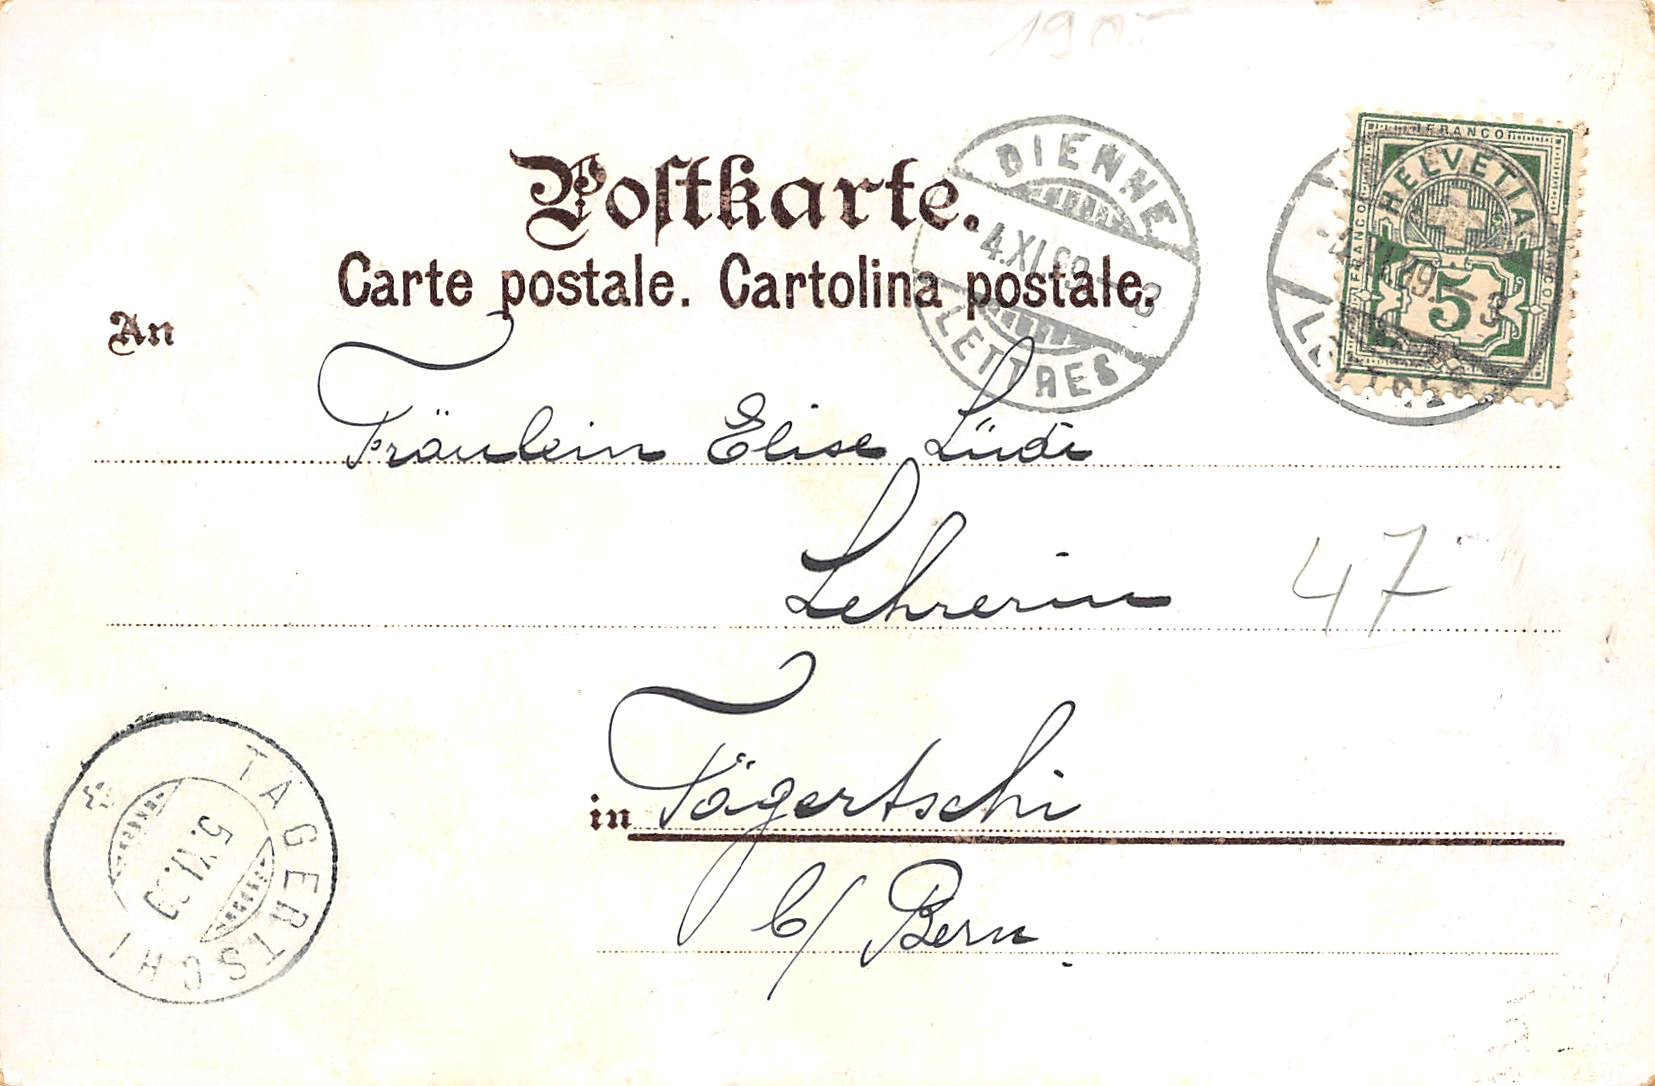 190-
Postkarte.
Carte postale. Cartolina postale.
BIENNE
4.XI.99.-8
LETTRES
FRANCO
HELVETIA
5
An
Fräulein Elise Lüdi
Lehrerin
47
in Tägertschi
b/ Bern
TÄGERTSCHI
5.XI.99